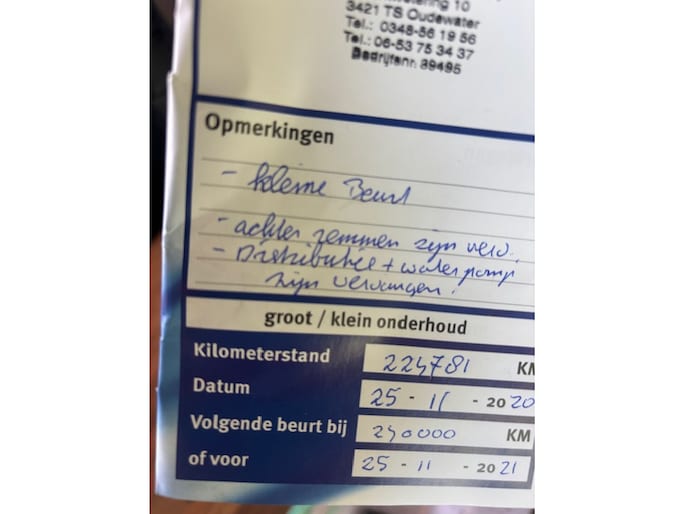 3421 TS Oudewater
Tel.: 0348-56 19 56
Tel.: 06-53 75 34 37
Bedrijfsnr. 89495
Opmerkingen
- kleine Beurt
- achter remmen zijn verv.
- Distributie + waterpomp
zijn vervangen!
groot / klein onderhoud
Kilometerstand 224781 KM
Datum 25 - 11 - 2020
Volgende beurt bij 240000 KM
of voor 25 - 11 - 2021